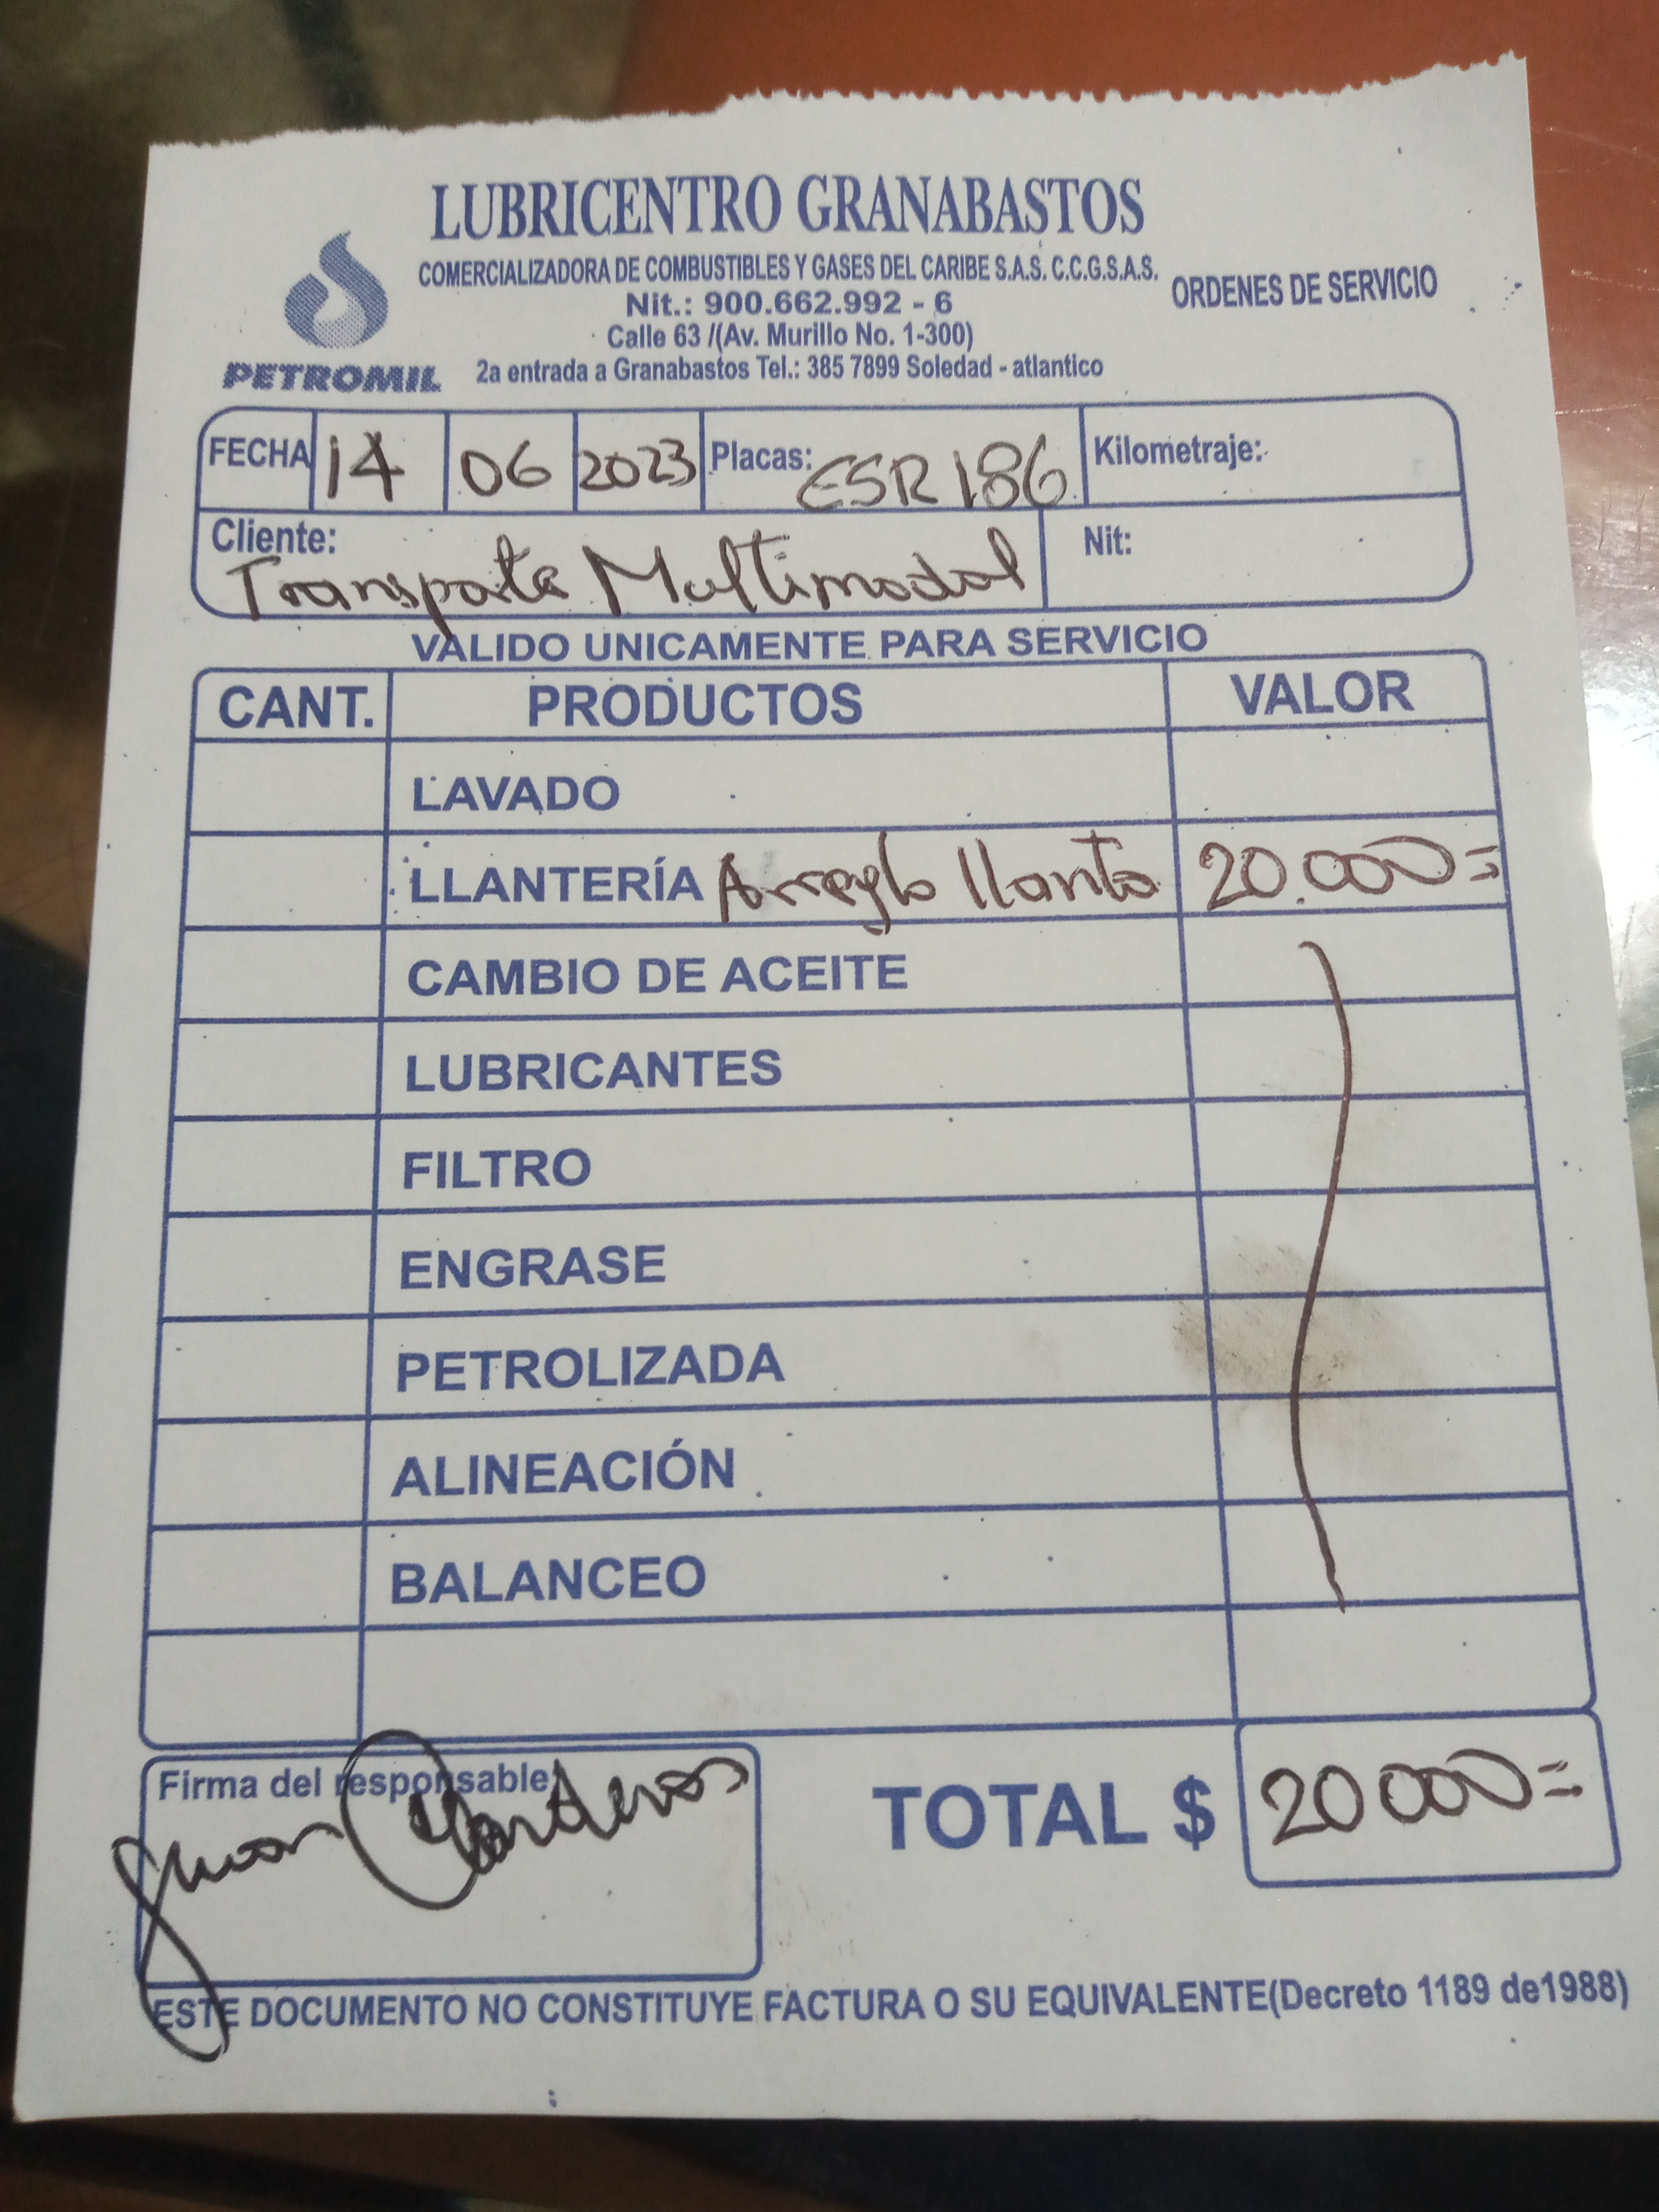 LUBRICENTRO GRANABASTOS
COMERCIALIZADORA DE COMBUSTIBLES Y GASES DEL CARIBE S.A.S. C.C.G.S.A.S.
ORDENES DE SERVICIO
Nit.: 900.662.992 - 6
Calle 63 /(Av. Murillo No. 1-300)
PETROMIL
2a entrada a Granabastos Tel.: 385 7899 Soledad - atlantico
FECHA 14 06 2023 Placas: ESR 186 Kilometraje:
Cliente: Transporte Multimodal Nit:
VALIDO UNICAMENTE PARA SERVICIO
CANT. PRODUCTOS VALOR
LAVADO
LLANTERÍA Arreglo llanta 20.000=
CAMBIO DE ACEITE
LUBRICANTES
FILTRO
ENGRASE
PETROLIZADA
ALINEACIÓN
BALANCEO
Firma del responsable
Juan
TOTAL $ 20 000=
ESTE DOCUMENTO NO CONSTITUYE FACTURA O SU EQUIVALENTE(Decreto 1189 de1988)